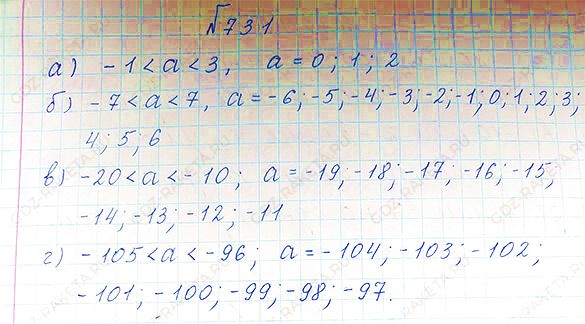 №731
а) -1 < a < 3, a = 0; 1; 2
б) -7 < a < 7, a = -6; -5; -4; -3; -2; -1; 0; 1; 2; 3;
4; 5; 6
в) -20 < a < -10; a = -19; -18; -17; -16; -15;
-14; -13; -12; -11
г) -105 < a < -96; a = -104; -103; -102;
-101; -100; -99; -98; -97.